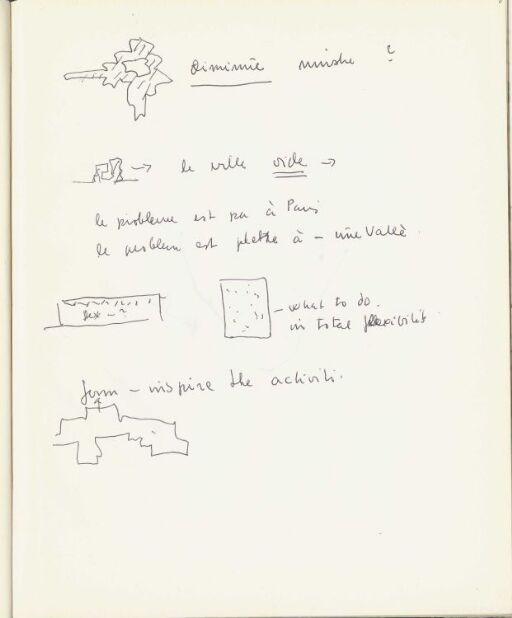 diminuie ?
le ville vide
le probleme est pa à Paris
le problem est à – une Vallè
– what to do.
in total flexibilit
form – inspire the activiti.